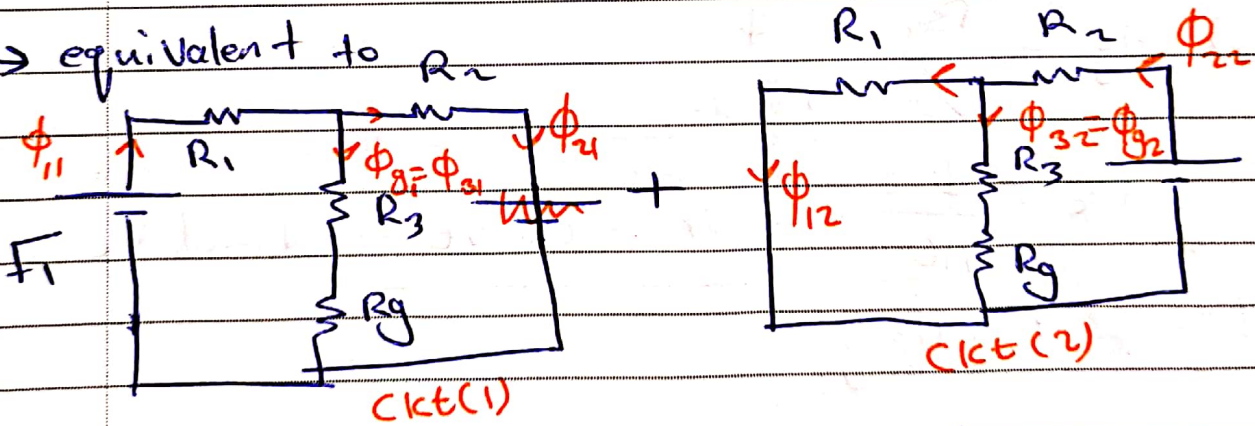 → equivalent to
R₁
R₂
ϕ₁₁
R₁
ϕg₁=ϕ₃₁
R₃
ϕ₂₁
F₁
Rg
Ckt(1)
+
R₁
R₂
ϕ₂₂
ϕ₃₂=ϕg₂
R₃
ϕ₁₂
Rg
Ckt(2)